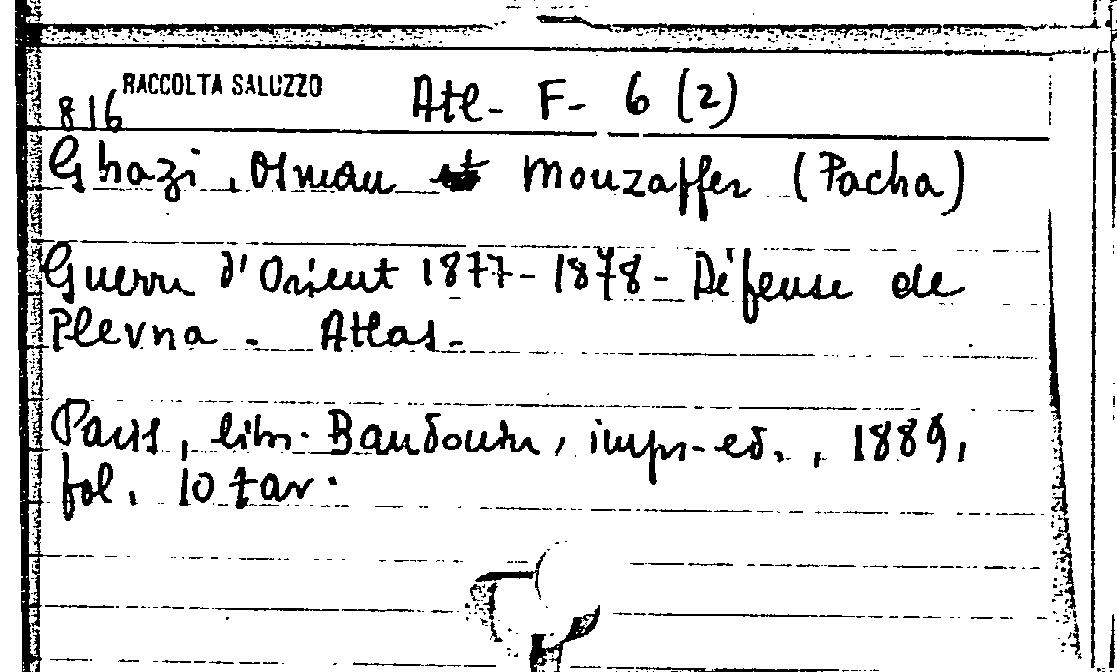 RACCOLTA SALUZZO
816 Atl- F- 6 (2)
Ghazi, Osman et Mouzaffer (Pacha)
Guerre d'Orient 1877-1878- Défense de
Plevna - Atlas-
Paris, libr. Baudouin, impr-ed., 1889,
fol. 10 tav.